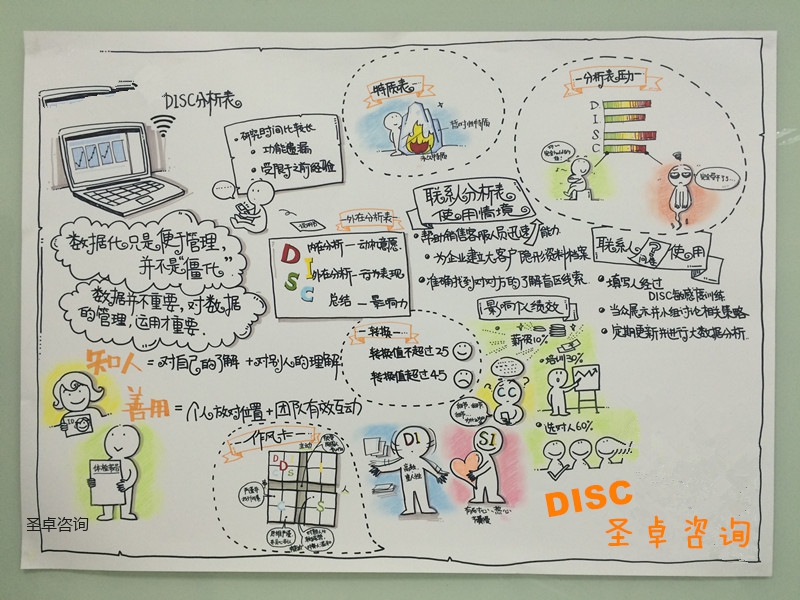 DISC分析表
·研究时间比较长
·功能遗漏
·受限于之前经验
特质表
分析表压力
D
I
S
C
数据化只是便于管理,
并不是“僵化”
数据并不重要,对数据
的管理,运用才重要.
外在分析表
D
I
S
C
内在分析—动机意愿
外在分析—行为表现
总结—影响力
联系人分析表
使用情境
·帮助销售客服人员迅速能力
·为企业建立大客户隐形资料档案
·准确找到对对方的了解盲区线索
联系人
问卷
使用
·填写人经过
DISC敏感度训练
·当众展示并小组讨论相关策略
·定期更新并进行大数据分析
影响个人绩效
薪资10%
·培训30%
·选对人60%
转换
转换值不超过25
转换值超过45
知人=对自己的了解+对别人的理解
善用=个人放对位置+团队有效互动
体检报告
作风卡
D
D
S
I
C
S
DI
SI
CC
DISC
圣卓咨询
圣卓咨询